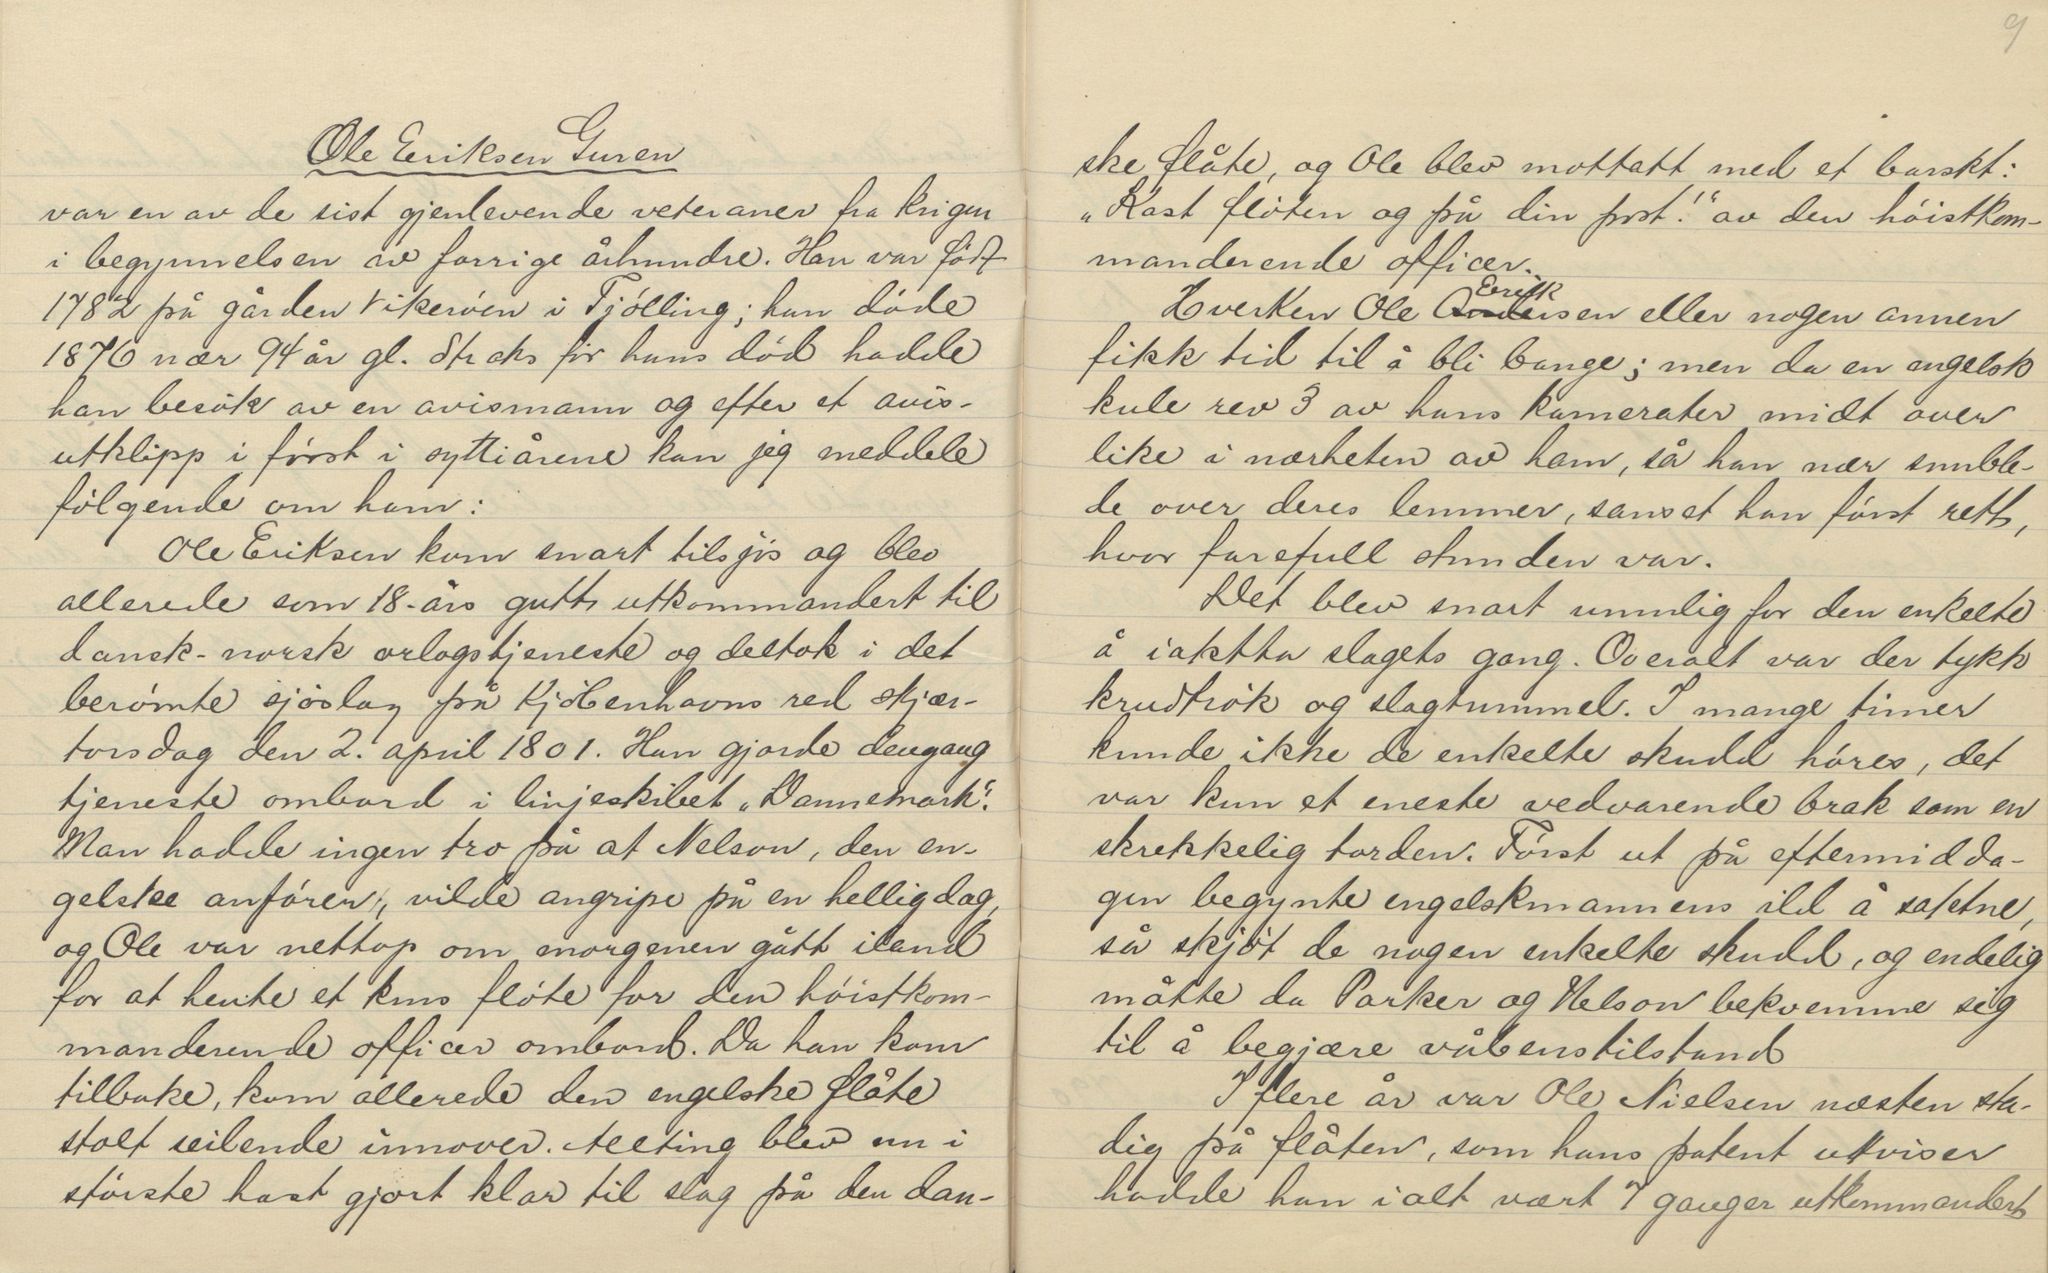 Ole Eriksen Guren
var en av de sist gjenlevende veteraner fra krigen
i begynnelsen av forrige århundre. Han var født
1782 på gården Vikerøen i Tjølling; han døde
1876 nær 94 år gl. Straks før hans død hadde
han besøk av en avismann og efter et avis-
utklipp i først i syttiårene kan jeg meddele
følgende om ham:
Ole Eriksen kom snart tilsjøs og blev
allerede som 18-års gutt utkommandert til
dansk-norsk orlogstjeneste og deltok i det
berømte sjøslag på Kjøbenhavns red skjær-
torsdag den 2. april 1801. Han gjorde dengang
tjeneste ombord i linjeskibet „Dannemark".
Man hadde ingen tro på at Nelson, den en-
gelske anfører, vilde angripe på en helligdag,
og Ole var nettop om morgenen gått iland
for at hente et krus fløte for den høistkom-
manderende officer ombord. Da han kom
tilbake, kom allerede den engelske flåte
stolt seilende innover. Allting blev nu i
største hast gjort klar til slag på den dan-
9
ske flåte, og Ole blev mottatt med et barskt:
„Kast fløten og på din post!" av den høistkom-
manderende officer.
Erik
Hverken Ole Andersen eller nogen annen
fikk tid til å bli bange; men da en engelsk
kule rev 3 av hans kamerater midt over
like i nærheten av ham, så han nær snuble-
de over deres lemmer, sanset han først rett,
hvor farefull stunden var.
Det blev snart umulig for den enkelte
å iaktta slagets gang. Overalt var der tykk
krudtrøk og slagtummel. I mange timer
kunde ikke de enkelte skudd høres, det
var kun et eneste vedvarende brak som en
skrekkelig torden. Først ut på eftermidda-
gen begynte engelskmannens ild å saktne,
så skjøt de nogen enkelte skudd, og endelig
måtte da Parker og Nelson bekvemme sig
til å begjære våbenstilstand
I flere år var Ole Nielsen næsten sta-
dig på flåten, som hans patent utviser
hadde han ialt vært 7 ganger utkommandert